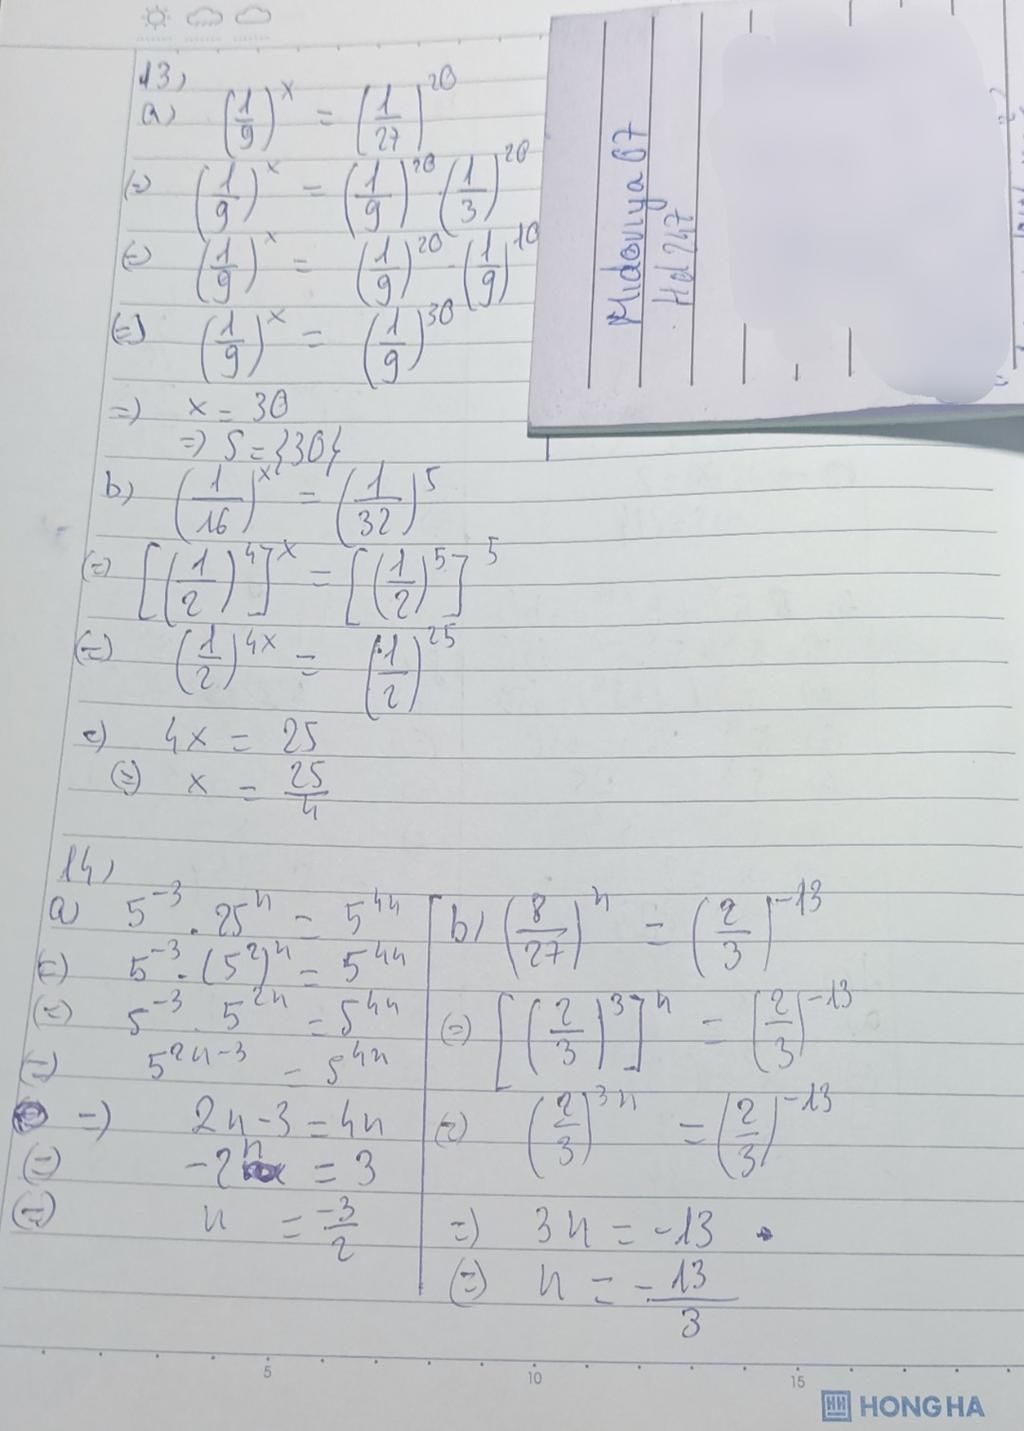 13,
a) (1/9)^x = (1/27)^20
(=) (1/9)^x = (1/9)^20 (1/3)^20
(=) (1/9)^x = (1/9)^20 . (1/9)^10
(=) (1/9)^x = (1/9)^30
=) x = 30
=) S = {30}
b) (1/16)^x = (1/32)^5
(=) [(1/2)^4]^x = [(1/2)^5]^5
(=) (1/2)^4x = (1/2)^25
=) 4x = 25
(=) x = 25/4
14,
a) 5^-3 . 25^n = 5^4n
(=) 5^-3 . (5^2)^n = 5^4n
(=) 5^-3 . 5^2n = 5^4n
(=) 5^2n-3 = 5^4n
=) 2n - 3 = 4n
(=) -2n = 3
(=) n = -3/2
b) (8/27)^n = (2/3)^-13
(=) [(2/3)^3]^n = (2/3)^-13
(=) (2/3)^3n = (2/3)^-13
=) 3n = -13
(=) n = -13/3
Midoviya 07
Hd 247
5 10 15
HONG HA